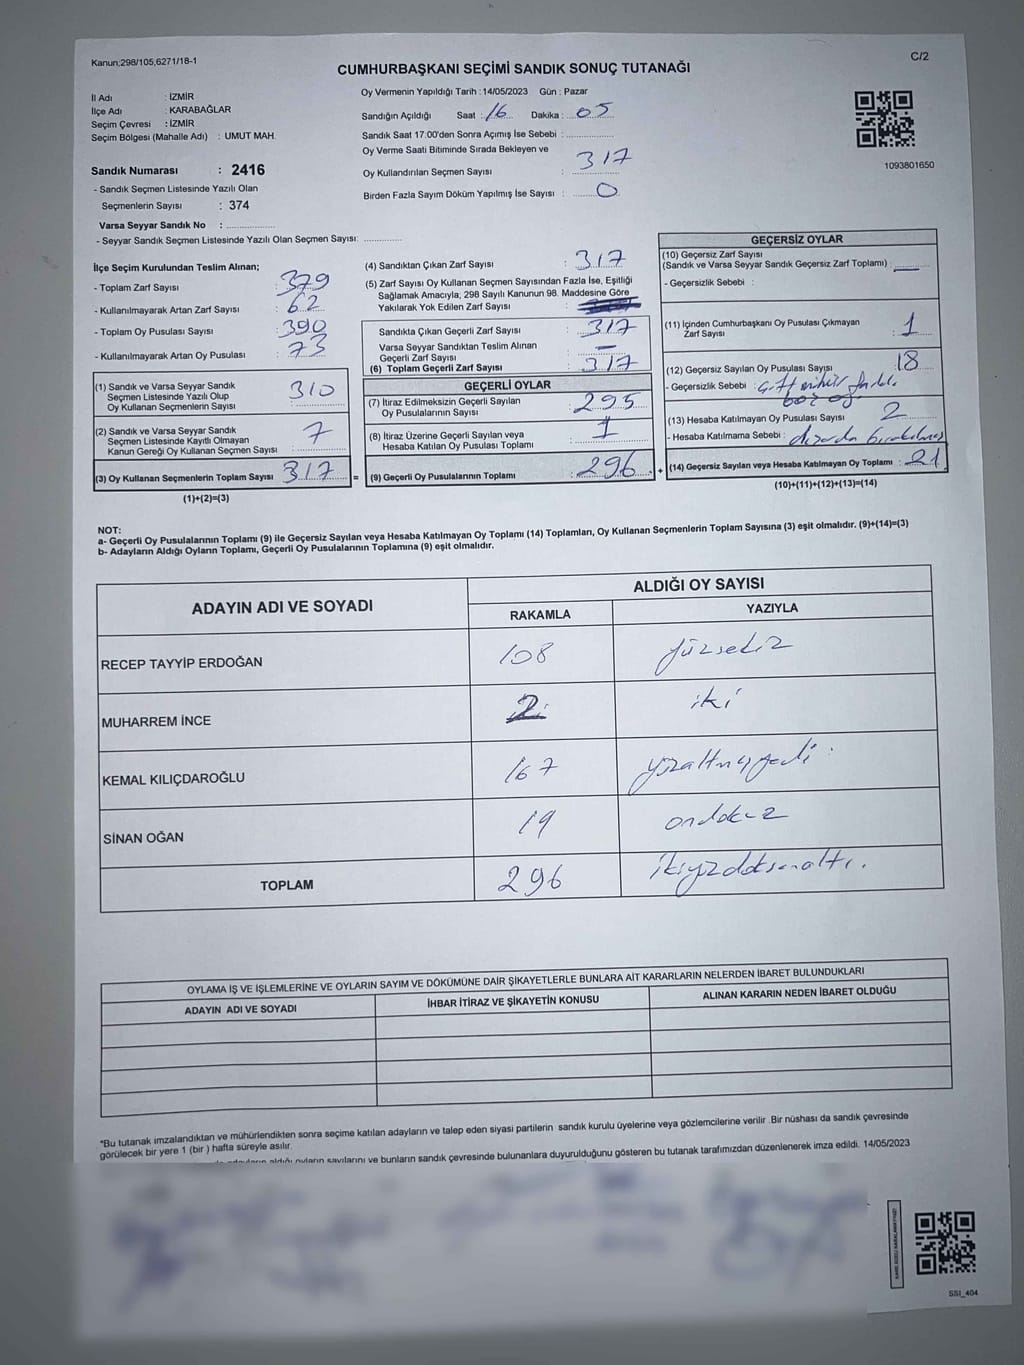 Kanun;298/105,6271/18-1
C/2
CUMHURBAŞKANI SEÇİMİ SANDIK SONUÇ TUTANAĞI
İl Adı : İZMİR
İlçe Adı : KARABAĞLAR
Seçim Çevresi : İZMİR
Seçim Bölgesi (Mahalle Adı) : UMUT MAH.
Sandık Numarası : 2416
- Sandık Seçmen Listesinde Yazılı Olan
Seçmenlerin Sayısı : 374
Varsa Seyyar Sandık No :
- Seyyar Sandık Seçmen Listesinde Yazılı Olan Seçmen Sayısı:
Oy Vermenin Yapıldığı Tarih : 14/05/2023 Gün : Pazar
Sandığın Açıldığı Saat : 16 Dakika : 05
Sandık Saat 17.00'den Sonra Açımış İse Sebebi :
Oy Verme Saati Bitiminde Sırada Bekleyen ve
Oy Kullandırılan Seçmen Sayısı : 317
Birden Fazla Sayım Döküm Yapılmış İse Sayısı : 0
1093801650
İlçe Seçim Kurulundan Teslim Alınan;
- Toplam Zarf Sayısı : 379
- Kullanılmayarak Artan Zarf Sayısı : 62
- Toplam Oy Pusulası Sayısı : 390
- Kullanılmayarak Artan Oy Pusulası : 73
(1) Sandık ve Varsa Seyyar Sandık
Seçmen Listesinde Yazılı Olup
Oy Kullanan Seçmenlerin Sayısı : 310
(2) Sandık ve Varsa Seyyar Sandık
Seçmen Listesinde Kayıtlı Olmayan
Kanun Gereği Oy Kullanan Seçmen Sayısı : 7
(3) Oy Kullanan Seçmenlerin Toplam Sayısı : 317 =
(1)+(2)=(3)
(4) Sandıktan Çıkan Zarf Sayısı : 317
(5) Zarf Sayısı Oy Kullanan Seçmen Sayısından Fazla İse, Eşitliği
Sağlamak Amacıyla; 298 Sayılı Kanunun 98. Maddesine Göre
Yakılarak Yok Edilen Zarf Sayısı :
Sandıkta Çıkan Geçerli Zarf Sayısı : 317
Varsa Seyyar Sandıktan Teslim Alınan
Geçerli Zarf Sayısı : —
(6) Toplam Geçerli Zarf Sayısı : 317
GEÇERLİ OYLAR
(7) İtiraz Edilmeksizin Geçerli Sayılan
Oy Pusulalarının Sayısı : 295
(8) İtiraz Üzerine Geçerli Sayılan veya
Hesaba Katılan Oy Pusulası Toplamı : 1
(9) Geçerli Oy Pusulalarının Toplamı : 296 +
GEÇERSİZ OYLAR
(10) Geçersiz Zarf Sayısı
(Sandık ve Varsa Seyyar Sandık Geçersiz Zarf Toplamı) : —
- Geçersizlik Sebebi :
(11) İçinden Cumhurbaşkanı Oy Pusulası Çıkmayan
Zarf Sayısı : 1
(12) Geçersiz Sayılan Oy Pusulası Sayısı : 18
- Geçersizlik Sebebi : çift mühür
boz oy
(13) Hesaba Katılmayan Oy Pusulası Sayısı : 2
- Hesaba Katılmama Sebebi : dışarda bırakılmış
(14) Geçersiz Sayılan veya Hesaba Katılmayan Oy Toplamı : 21
(10)+(11)+(12)+(13)=(14)
NOT:
a- Geçerli Oy Pusulalarının Toplamı (9) ile Geçersiz Sayılan veya Hesaba Katılmayan Oy Toplamı (14) Toplamları, Oy Kullanan Seçmenlerin Toplam Sayısına (3) eşit olmalıdır. (9)+(14)=(3)
b- Adayların Aldığı Oyların Toplamı, Geçerli Oy Pusulalarının Toplamına (9) eşit olmalıdır.
ADAYIN ADI VE SOYADI
ALDIĞI OY SAYISI
RAKAMLA YAZIYLA
RECEP TAYYİP ERDOĞAN 108 yüzsekiz
MUHARREM İNCE 2 iki
KEMAL KILIÇDAROĞLU 167 yüzaltmışyedi
SİNAN OĞAN 19 ondokuz
TOPLAM 296 ikiyüzdoksanaltı.
OYLAMA İŞ VE İŞLEMLERİNE VE OYLARIN SAYIM VE DÖKÜMÜNE DAİR ŞİKAYETLERLE BUNLARA AİT KARARLARIN NELERDEN İBARET BULUNDUKLARI
ADAYIN ADI VE SOYADI İHBAR İTİRAZ VE ŞİKAYETİN KONUSU ALINAN KARARIN NEDEN İBARET OLDUĞU
*Bu tutanak imzalandıktan ve mühürlendikten sonra seçime katılan adayların ve talep eden siyasi partilerin sandık kurulu üyelerine veya gözlemcilerine verilir .Bir nüshası da sandık çevresinde
görülecek bir yere 1 (bir ) hafta süreyle asılır.
aldığı oyların sayılarını ve bunların sandık çevresinde bulunanlara duyurulduğunu gösteren bu tutanak tarafımızdan düzenlenerek imza edildi. 14/05/2023
SSI_404